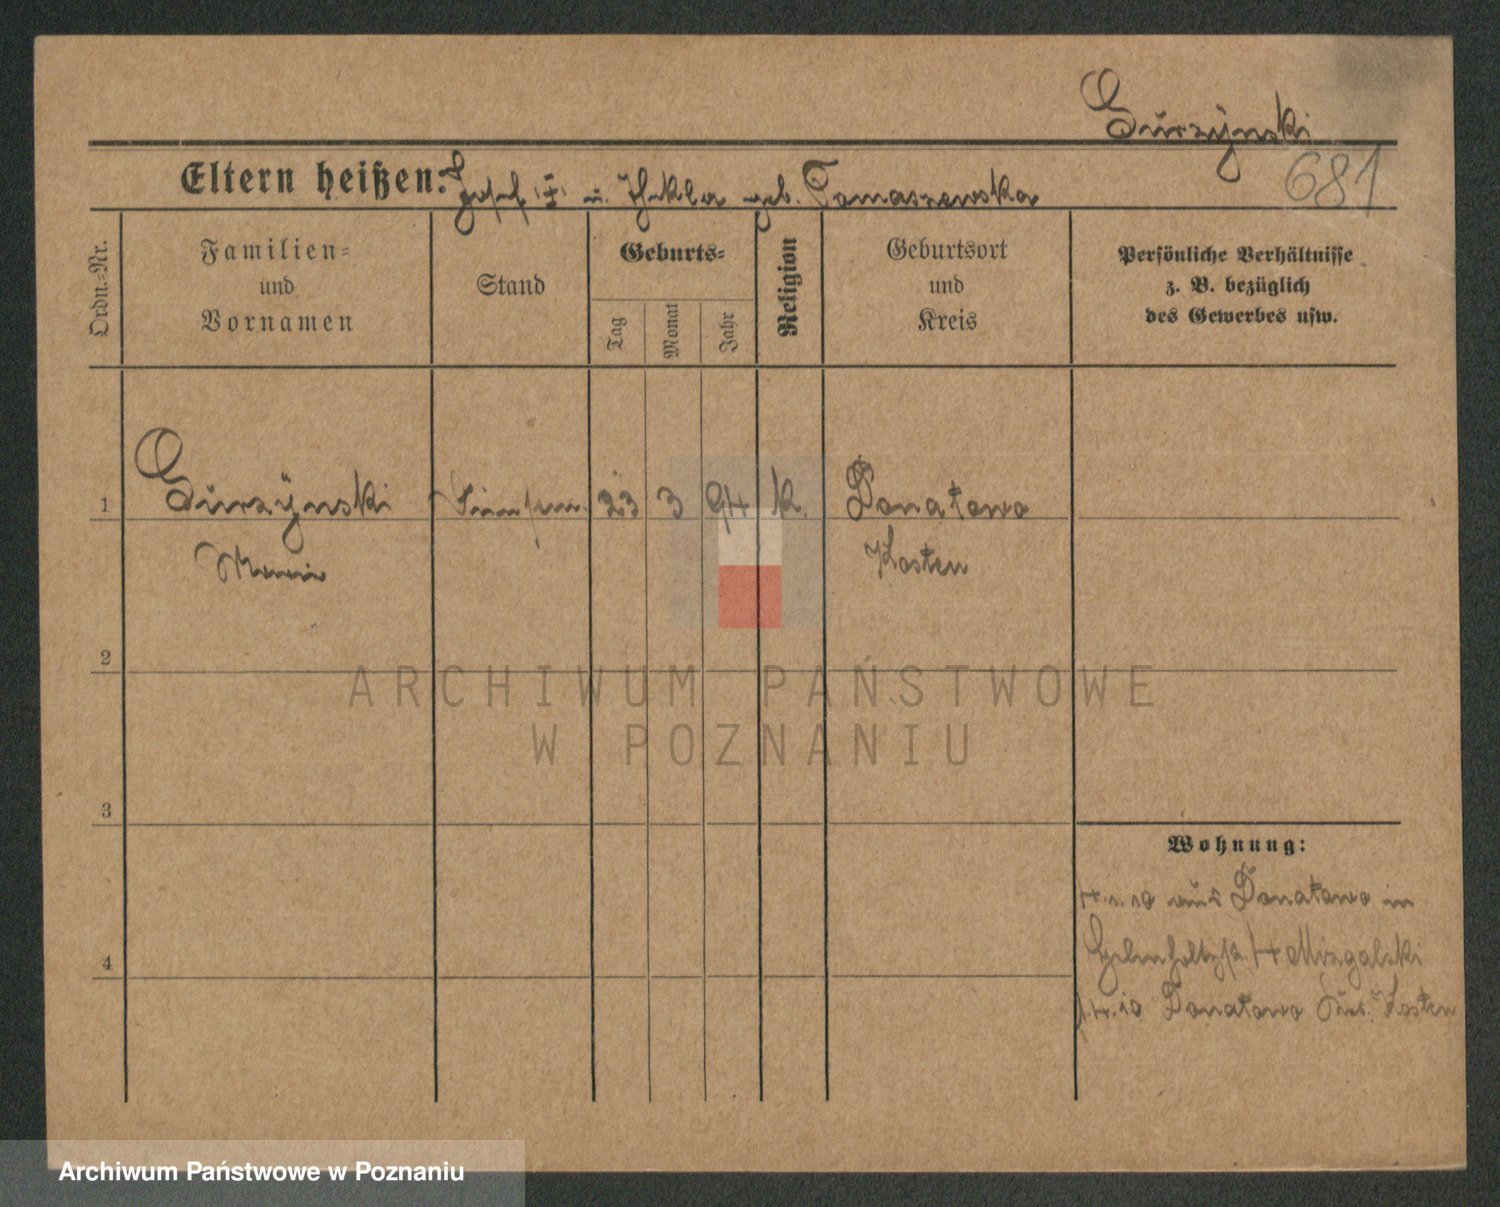 Gurzÿnski
681
Eltern heißen: Josef u. Thekla geb. Tomaszewska
Ordn.-Nr.
Familien- und Vornamen
Stand
Geburts-
Tag
Monat
Jahr
Religion
Geburtsort und Kreis
Persönliche Verhältnisse
z. B. bezüglich
des Gewerbes usw.
1 Gurzÿnski 23 3 94 k. Donatowo
Maria Kosten
2
ARCHIWUM PAŃSTWOWE
W POZNANIU
3
Wohnung:
aus Donatowo in
4 Mizgalski
Donatowo Krs. Kosten
Archiwum Państwowe w Poznaniu